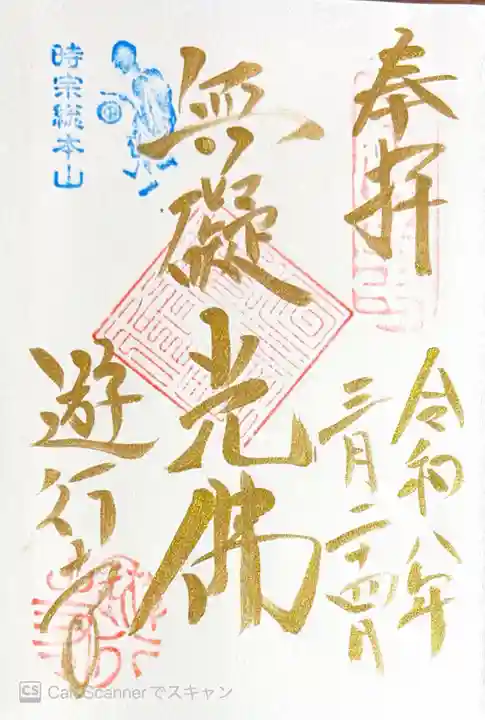 奉拝
令和八年
三月二十四日
無礙光佛
時宗総本山
遊行寺
CS CamScannerでスキャン